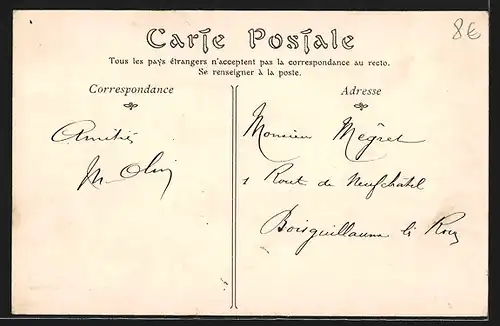 8€
Carte Postale
Tous les pays étrangers n'acceptent pas la correspondance au recto.
Se renseigner à la poste.
Correspondance
Amitiés
M.
Adresse
Monsieur Mégret
1 Rout de Neufchatel
Boisguillaume